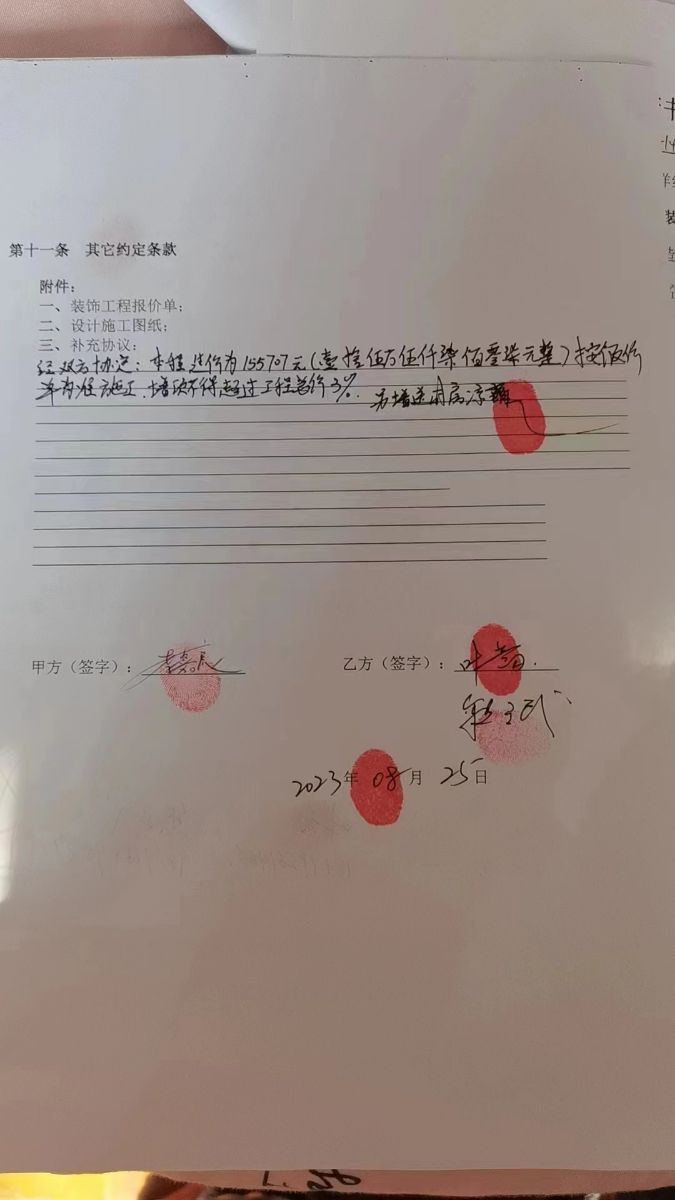 第十一条　其它约定条款
附件：
一、装饰工程报价单；
二、设计施工图纸；
三、补充协议：
经双方协定：本程造价为155707元(壹拾伍万伍仟柒佰零柒元整)按报价
单为准施工，增项不得超过工程总价3%. 另增送
甲方（签字）：
乙方（签字）：叶
2023年 08月 25日